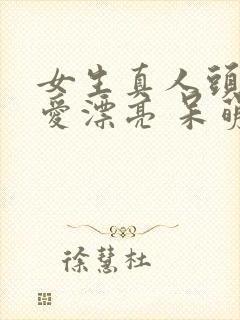 女生真人頭
愛漂亮 呆萌
徐慧杜